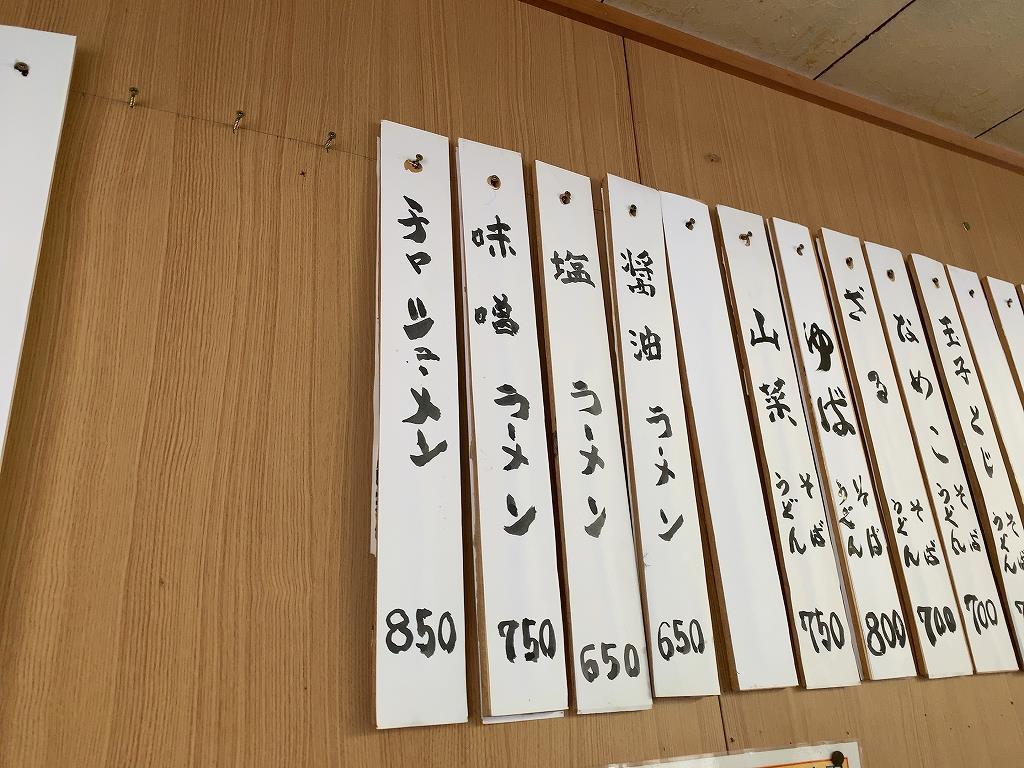 玉子とじ そば うどん
なめこ そば うどん 700
ざる そば うどん 700
ゆば そば うどん 800
山菜 そば うどん 750
醤油ラーメン 650
塩ラーメン 650
味噌ラーメン 750
チャーシューメン 850